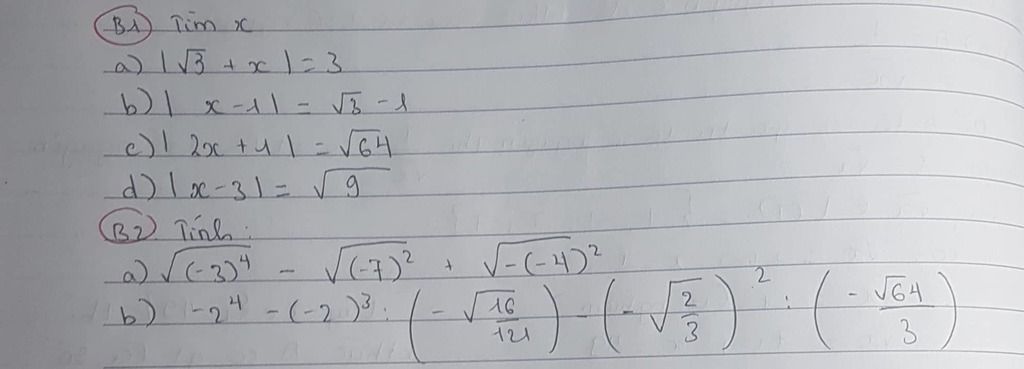 B1 Tìm x
a) |√3 + x| = 3
b) | x - 1| = √3 - 1
c) | 2x + 1| = √64
d) |x - 3| = √9
B2 Tính:
a) √(-3)⁴ - √(-7)² + √-(-4)²
b) -2⁴ - (-2)³ : (-√16/121) - (-√2/3)² : (-√64/3)